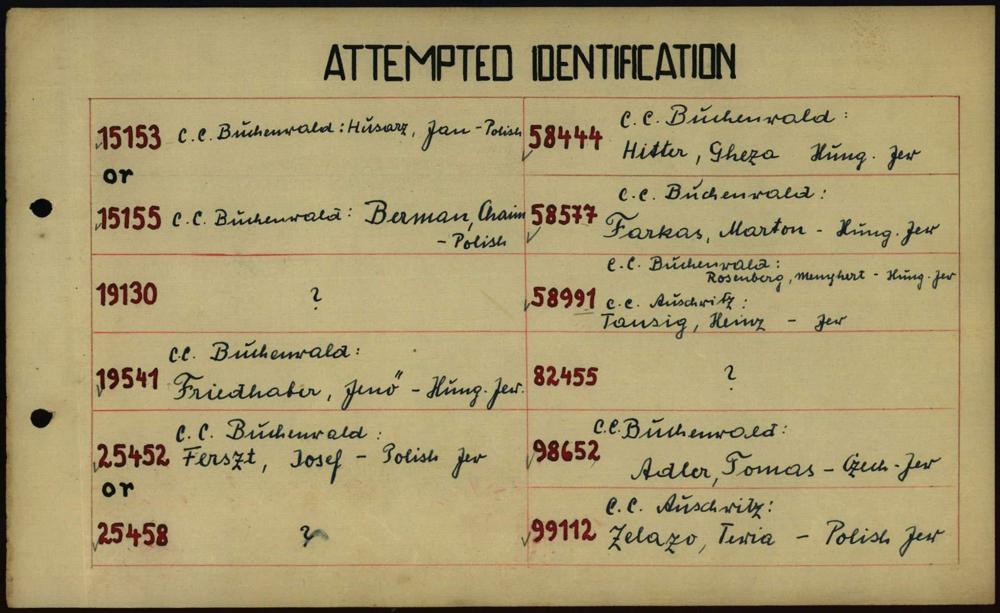 ATTEMPTED IDENTIFICATION
15153 C.C. Buchenwald: Husarz, Jan - Polish
or
15155 C.C. Buchenwald: Berman, Chaim
- Polish
19130 ?
C.C. Buchenwald:
19541 Friedhaber, Jenő - Hung. Jew.
C.C. Buchenwald:
25452 Ferszt, Josef - Polish Jew
or
25458 ?
C.C. Buchenwald:
58444 Hitter, Gheza Hung. Jew
C.C. Buchenwald:
58577 Farkas, Marton - Hung. Jew
C.C. Buchenwald:
Rosenberg, Menyhert - Hung. Jew
58991 C.C. Auschwitz:
Tausig, Heinz - Jew
82455 ?
C.C. Buchenwald:
98652 Adler, Tomas - Czech. Jew
C.C. Auschwitz:
99112 Zelazo, - Polish Jew